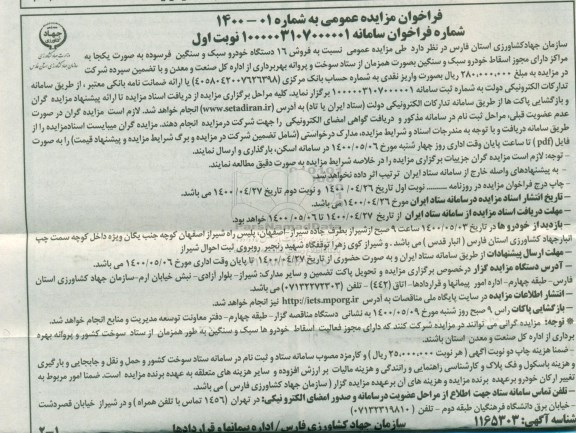 فراخوان مزایده عمومی به شماره ۰۱-۱۴۰۰
شماره فراخوان سامانه ۱۰۰۰۰۰۳۱۰۷۰۰۰۰۰۱ نوبت اول
سازمان جهادکشاورزی استان فارس در نظر دارد طی مزایده عمومی نسبت به فروش ۱۶ دستگاه خودرو سبک و سنگین فرسوده به صورت یکجا به
مراکز دارای مجوز اسقاط خودرو سبک و سنگین بصورت همزمان از ستاد سوخت و پروانه بهره‌برداری از اداره کل صنعت و معدن و با تضمین سپرده شرکت
در مزایده به مبلغ ۲۸۰,۰۰۰,۰۰۰ ریال بصورت واریز نقدی به شماره حساب بانک مرکزی (۴۰۵۸۰۴۲۰۰۷۶۲۶۳۹۸) یا ارائه ضمانت نامه بانکی معتبر، از طریق سامانه
تدارکات الکترونیکی دولت به شماره ثبت سامانه ۱۰۰۰۰۰۳۱۰۷۰۰۰۰۰۱ برگزار نماید. کلیه مراحل برگزاری مزایده از دریافت اسناد مزایده تا ارائه پیشنهاد مزایده گران
و بازگشایی پاکت ها از طریق سامانه تدارکات الکترونیکی دولت (ستاد ایران یا تاد) به آدرس (www.setadiran.ir) انجام خواهد شد. لازم است مزایده گران در صورت
عدم عضویت قبلی، مراحل ثبت نام در سامانه مذکور و دریافت گواهی امضای الکترونیکی را جهت شرکت در مزایده انجام دهند. مزایده گران میبایست اسناد مزایده را از
طریق سامانه دریافت و با توجه به مندرجات اسناد و شرایط مزایده، مدارک درخواستی (شامل تضمین شرکت در مزایده و برگ شرایط مزایده و پیشنهاد قیمت) را به صورت
فایل (pdf) تا ساعت پایان وقت اداری روز چهار شنبه مورخ ۱۴۰۰/۰۵/۰۶ در سامانه اسکن، بارگذاری و ارسال نمایند.
- توجه: لازم است مزایده گران جزییات برگزاری مزایده را در خلاصه شرایط مزایده به صورت دقیق مطالعه نمایند.
- به پیشنهادهای واصله خارج از سامانه ستاد ایران ترتیب اثر داده نخواهد شد.
- چاپ درج فراخوان مزایده در روزنامه ......... نوبت اول تاریخ ۱۴۰۰/۰۴/۲۶ و نوبت دوم تاریخ ۱۴۰۰/۰۴/۲۷ می باشد.
- تاریخ انتشار اسناد مزایده در سامانه ستاد ایران مورخ ۱۴۰۰/۰۴/۲۶ می باشد.
- مهلت دریافت اسناد مزایده از سامانه ستاد ایران از تاریخ ۱۴۰۰/۰۴/۲۷ تا ۱۴۰۰/۰۵/۰۶ خواهد بود.
- بازدید از خودرو ها در تاریخ ۱۴۰۰/۰۵/۰۳ ساعت ۹ صبح از شیراز بطرف جاده شیراز - اصفهان، پلیس راه شیراز اصفهان کوچه جنب یکان ویژه داخل کوچه سمت چپ
انبار جهاد کشاورزی استان فارس (انبار قدس) می باشد. و شیراز کوی زهرا توقفگاه شهید رنجبر روبروی ثبت احوال شیراز
- مهلت ارسال پیشنهادات از طریق سامانه ستاد ایران و به صورت حضوری از تاریخ ۱۴۰۰/۰۴/۲۷ تا پایان وقت اداری مورخ ۱۴۰۰/۰۵/۰۶ می باشد.
- آدرس دستگاه مزایده گزار در خصوص برگزاری مزایده و تحویل پاکت تضمین و سایر مدارک: شیراز- بلوار آزادی- نبش خیابان ارم- سازمان جهاد کشاورزی استان
فارس- طبقه چهارم- اداره امور پیمانها و قراردادها- اتاق (۴۴۲) - تلفن (۰۷۱۳۲۲۷۲۳۰۳) می باشد.
- انتشار اطلاعات مزایده در سایت پایگاه ملی مناقصات به آدرس http://iets.mporg.ir نیز انجام خواهد شد.
- بازگشایی پاکات راس ۹ صبح روز شنبه مورخ ۱۴۰۰/۰۵/۰۹ به نشانی دستگاه مناقصه گزار- طبقه چهارم- دفتر معاونت توسعه مدیریت و منابع انجام خواهد شد.
توجه: مزایده گرانی می توانند در مزایده شرکت کنند که دارای مجوز فعالیت اسقاط خودرو ها سبک و سنگین به طور همزمان از ستاد سوخت کشور و پروانه بهره
برداری از اداره کل صنعت و معدن استان باشند.
- ضمنا هزینه چاپ دو نوبت آگهی (هر نوبت ۲۵,۰۰۰,۰۰۰ ریال) و کارمزد مصوب سامانه ستاد و ثبت نام در سامانه ستاد سوخت کشور و حمل و نقل و جابجایی و بارگیری
و هزینه باسکول و فک پلاک و کارشناسی راهنمایی و رانندگی و هزینه مالیات بر ارزش افزوده و سایر هزینه های متعلقه به عهده برنده مزایده است. ضمنا امور مربوط به
تغییر ارکان خودرو برعهده برنده مزایده و هزینه های آن برعهده مزایده گزار (سازمان جهاد کشاورزی فارس) می باشد.
- تلفن تماس سامانه ستاد جهت اطلاع از مراحل عضویت در سامانه و صدور امضای الکترونیکی: در تهران (۱۴۵۶ تماس با تلفن همراه) و در شیراز خیابان قصردشت
- خیابان برق دانشگاه فرهنگیان طبقه دوم - تلفن (۰۷۱۳۲۳۱۹۸۱۰)
شناسه آگهی: ۱۱۶۵۳۰۳ سازمان جهاد کشاورزی فارس/ اداره پیمانها و قراردادها ۲-۱